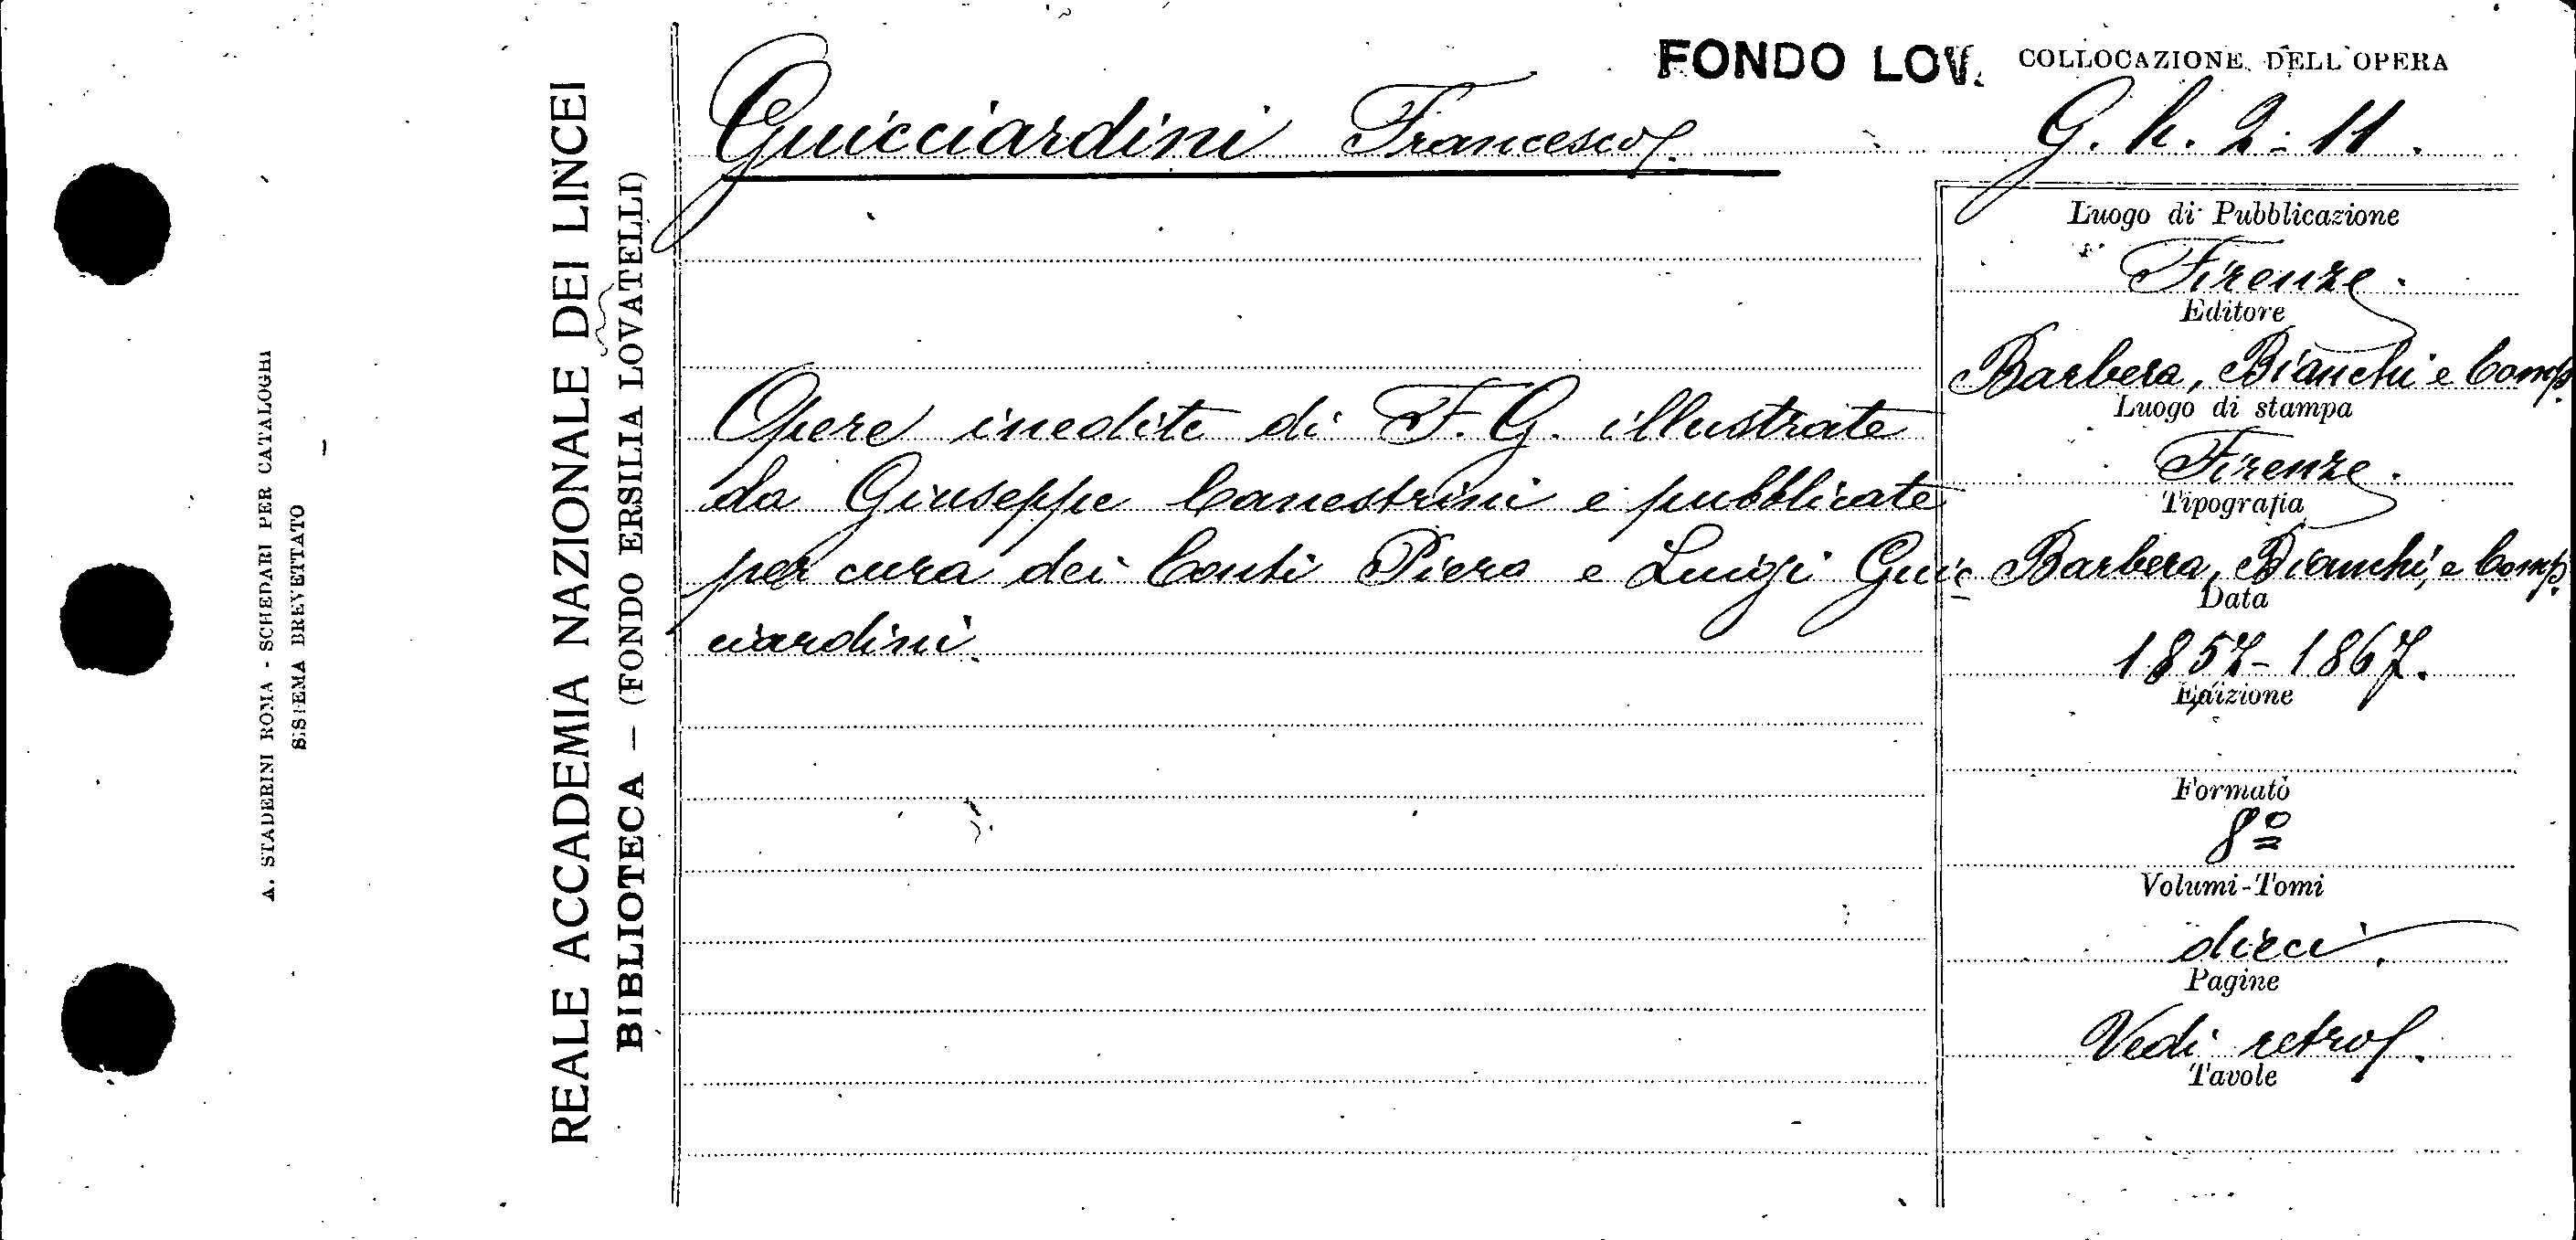 A. STADERINI ROMA - SCHEDARI PER CATALOGHI
SISTEMA BREVETTATO
REALE ACCADEMIA NAZIONALE DEI LINCEI
BIBLIOTECA — (FONDO ERSILIA LOVATELLI)
FONDO LOV.
COLLOCAZIONE DELL'OPERA
Guicciardini Francesco.
G. h. 2: 11.
Opere inedite di F. G. illustrate
da Giuseppe Canestrini e pubblicate
per cura dei Conti Piero e Luigi Guic-
ciardini.
Luogo di Pubblicazione
Firenze.
Editore
Barbera, Bianchi e Comp.
Luogo di stampa
Firenze.
Tipografia
Barbera, Bianchi, e Comp.
Data
1857-1867.
Edizione
Formato
8º
Volumi-Tomi
dieci.
Pagine
Vedi retro.
Tavole